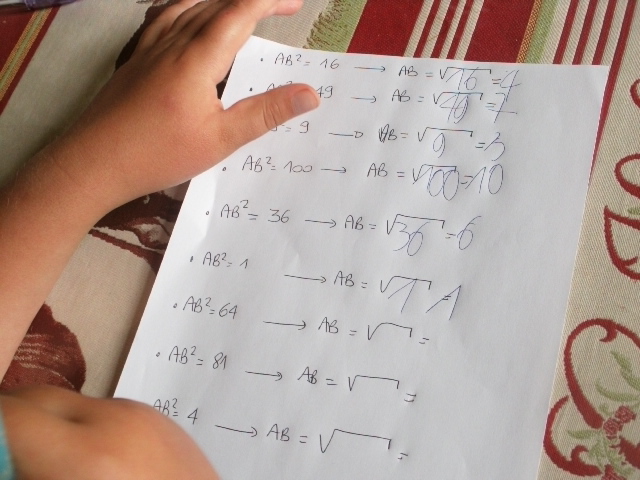 • AB² = 16 → AB = √16 = 4
49 → AB = √49 = 7
² = 9 → AB = √9 = 3
• AB² = 100 → AB = √100 = 10
• AB² = 36 → AB = √36 = 6
• AB² = 1 → AB = √1 = 1
• AB² = 64 → AB = √ =
• AB² = 81 → AB = √ =
AB² = 4 → AB = √ =